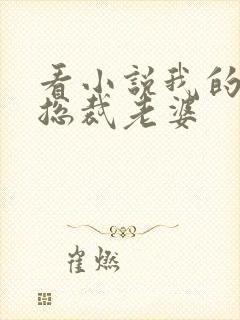 看小说我的
总裁老婆
崔燃